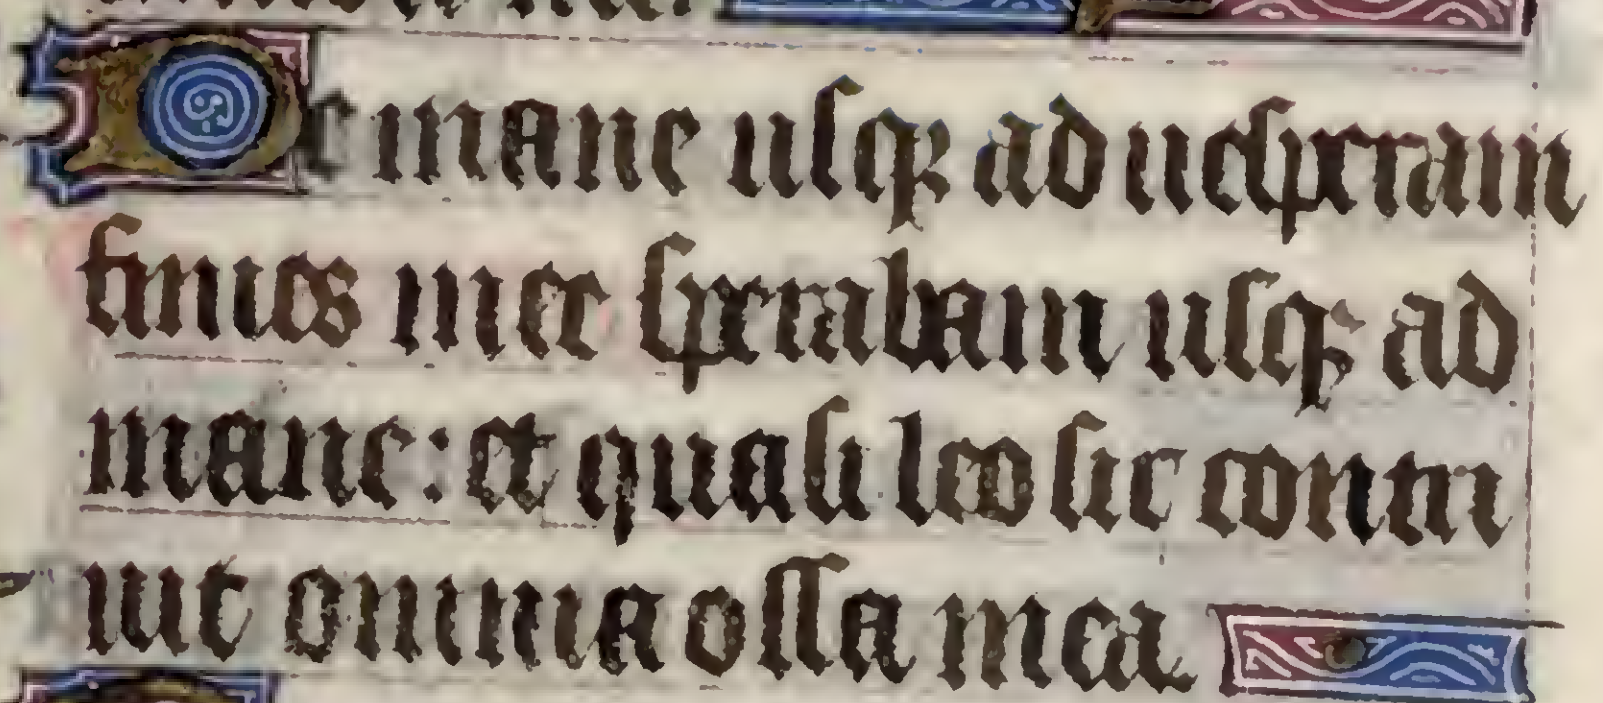 De mane usqꝫ ad uesperam
finies me sperabam usqꝫ ad
mane: et quasi leo sic contri
uit omnia ossa mea